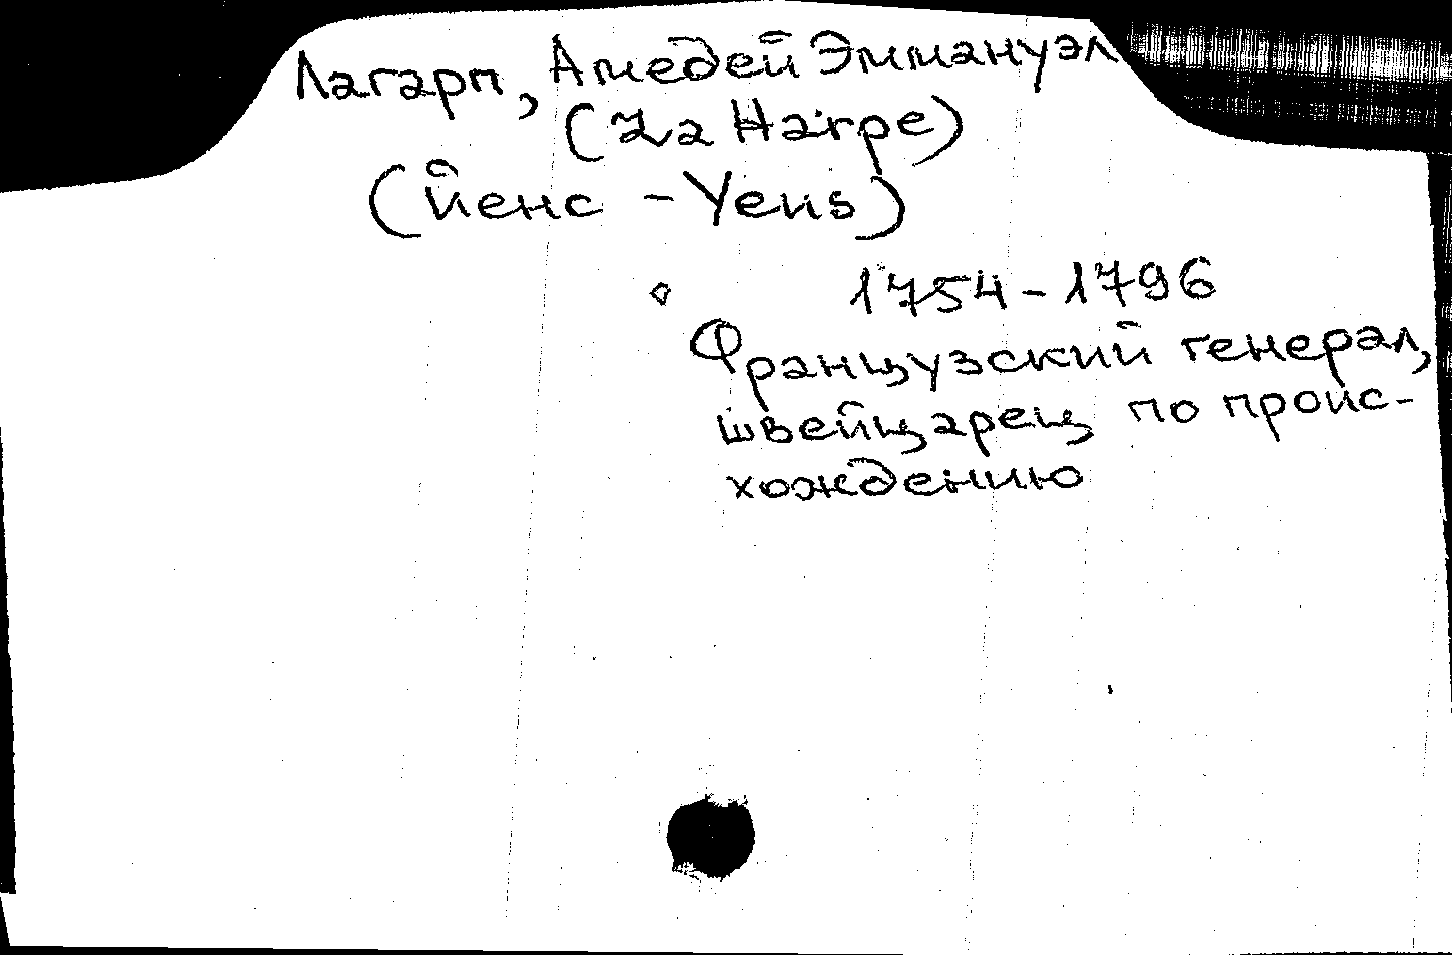 Лагарп, Амедей Эммануэл
(La Harpe)
(Йенс - Yens)
1754-1796
Французский генерал,
швейцарец по проис-
хождению